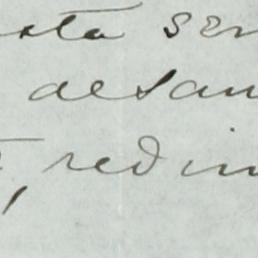 sta ser
desan
, redim